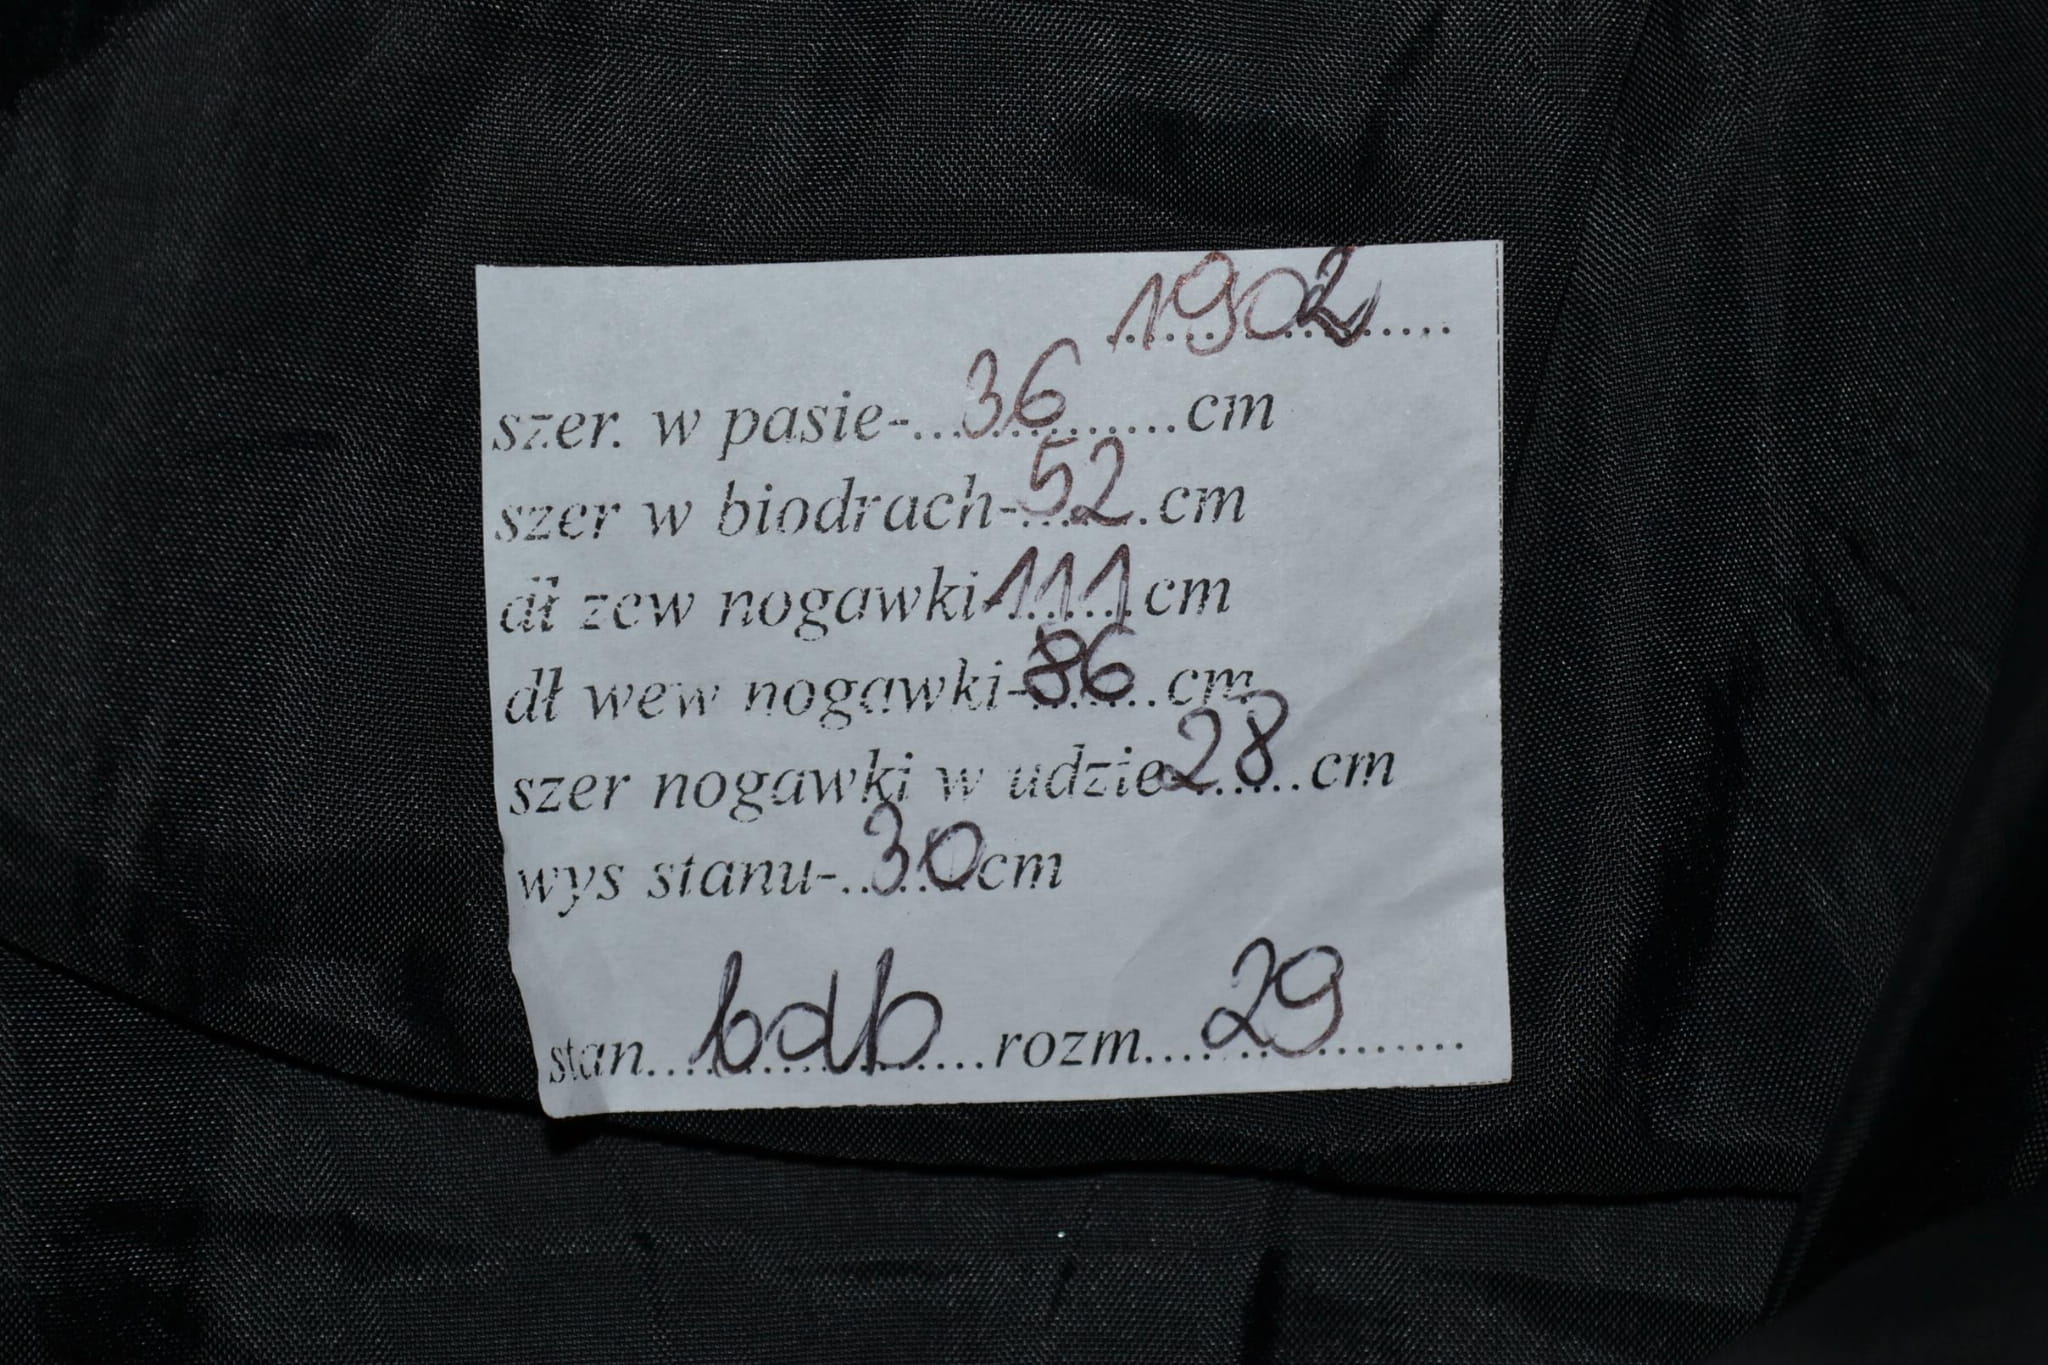 1902
szer. w pasie-...36...........cm
szer w biodrach-52.cm
dł zew nogawki-111.cm
dł wew nogawki-86..cm
szer nogawki w udzie-28.....cm
wys stanu-..30cm
stan....bdb....rozm.....29...........